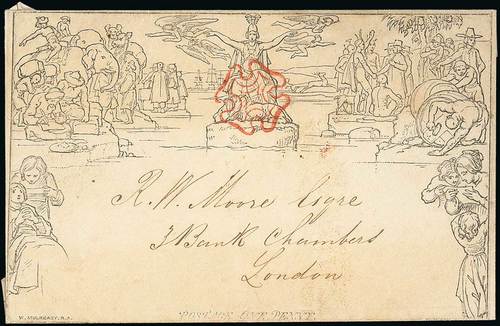 R. W. Moore Esqre
3 Bank Chambers
London
POSTAGE ONE PENNY.
W. MULREADY, R.A.